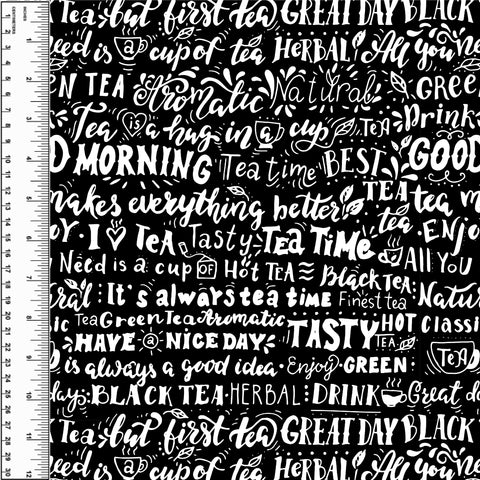 Tea but first tea GREAT DAY BLACK
need is a cup of tea HERBAL! All you ne
N TEA Aromatic Natural GREE
Tea is a hug in a cup TeA Drink
D MORNING Tea time BEST GOOD
makes everything better! TEA tea m
OY. I TeA Tasty Tea TiMe tea ENJO
Need is a cup OF Hot TEA Black TEA All YoU
ral It's always tea time Finest tea Natur
ic Tea Green Tea Aromatic TASTY HOT Classi
HAVE a NICE DAY TEA TeA
is always a good idea. Enjoy GREEN
day BLACK TEA HERBAL DRINK Great d
Tea but first tea GREAT DAY BLACK
need is a cup of tea HERBAL! All you ne